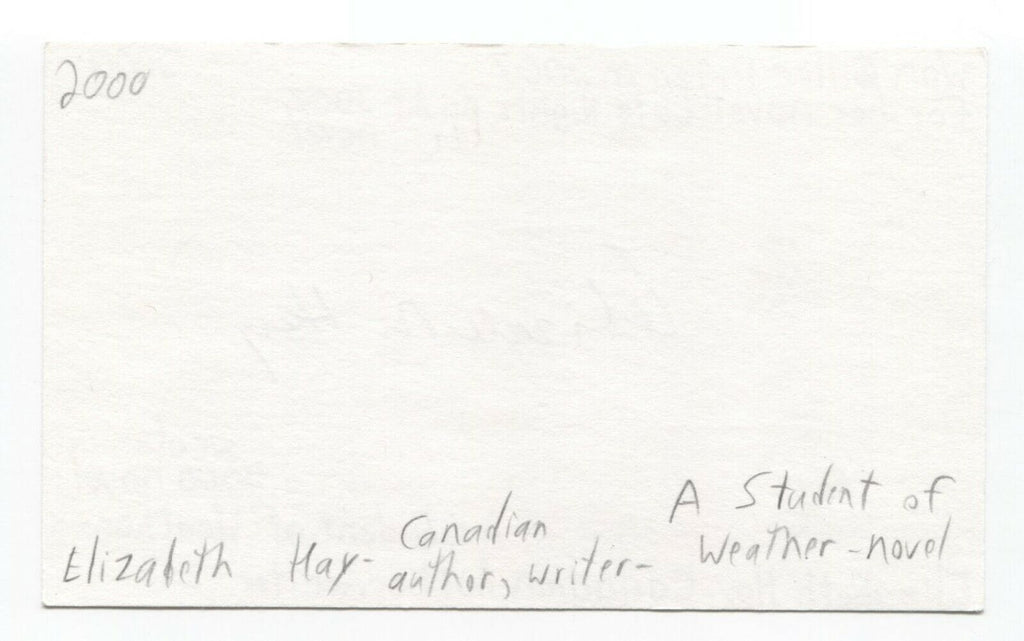 2000
Elizabeth Hay- Canadian author, writer- A Student of Weather - novel